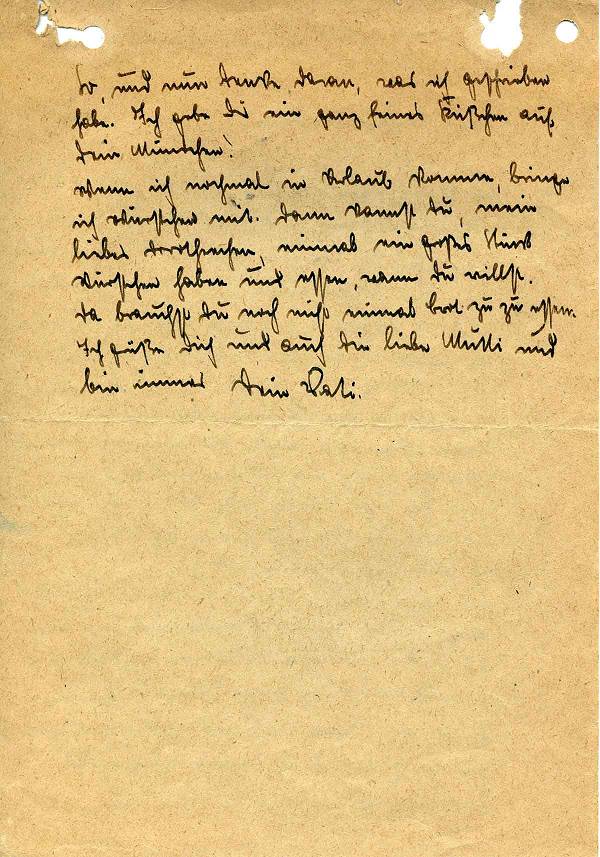 So, und nun denke daran, was ich geschrieben
habe. Ich gebe Dir ein ganz feines Küßchen auf
Dein Mündchen!
Wenn ich nochmal in Urlaub komme, bringe
ich Würstchen mit. Dann kannst Du, mein
liebes Dorotheechen, einmal ein großes Stück
Würstchen haben und essen, wann Du willst.
Da brauchst Du noch nicht einmal Brot zu zu essen.
Ich grüße Dich und auch die liebe Mutti und
bin immer Dein Vati.